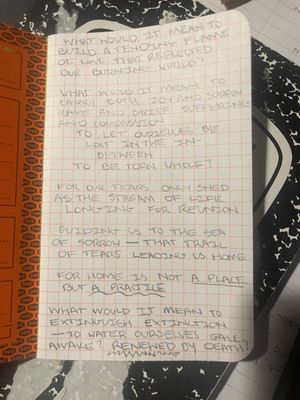 WHAT WOULD IT MEAN TO
BUILD A TENDING FLAME
OF LOVE THAT REFLECTED
OUR BURNING WORLD?
WHAT WOULD IT MEAN TO
CARRY BOTH JOY AND SORROW
RAGE AND GRIEF SUFFERING
AND COMPASSION
TO LET OURSELVES BE
LOST IN THE IN-
BETWEEN
TO BE TORN WHOLE?
FOR OUR TEARS ONLY SHED
AS THE STREAM OF LIFE
LONGING FOR REUNION
GUIDING US TO THE SEA
OF SORROW - THAT TRAIL
OF TEARS LEADING US HOME
FOR HOME IS NOT A PLACE
BUT A PRACTICE
WHAT WOULD IT MEAN TO
EXTINGUISH EXTINCTION
- TO WATER OURSELVES BACK
AWAKE? RENEWED BY DEATH?